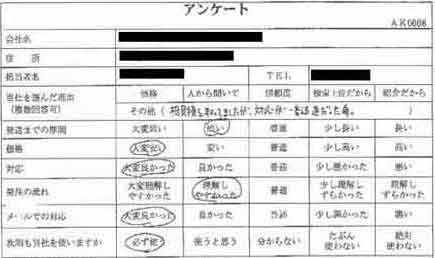 アンケート
AK0608
会社名
住所
担当者名 TEL
当社を選んだ理由 価格 人から聞いて 信頼度 検索上位だから 紹介だから
(複数回答可) その他( )
発送までの期間 大変短い 短い 普通 少し長い 長い
価格 大変安い 安い 普通 少し高い 高い
対応 大変良かった 良かった 普通 少し悪かった 悪い
発注の流れ 大変理解しやすかった 理解しやすかった 普通 少し理解しずらかった 理解しずらかった
メールでの対応 大変良かった 良かった 普通 少し悪かった 悪い
次回も当社を使いますか 必ず使う 使うと思う 分からない たぶん使わない 絶対使わない